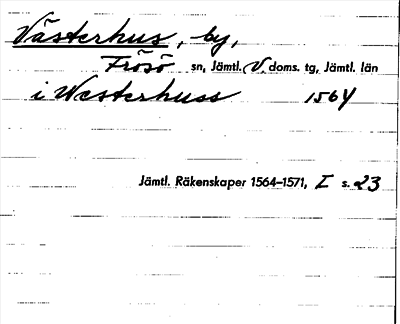 Västerhus, by,
Frösö sn, Jämtl. V. doms. tg, Jämtl. län
i Westerhuss 1564
Jämtl. Räkenskaper 1564-1571, I s. 23